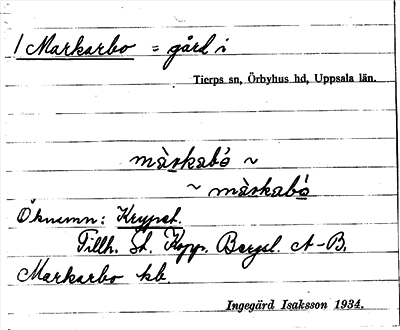 1 Markarbo = gård i
Tierps sn, Örbyhus hd, Uppsala län.
màskabó ~
~ màskabó
Öknamn: Krypet.
Tillh. St. Kopp. Bergsl. A-B.
Markarbo kb.
Ingegärd Isaksson 1934.